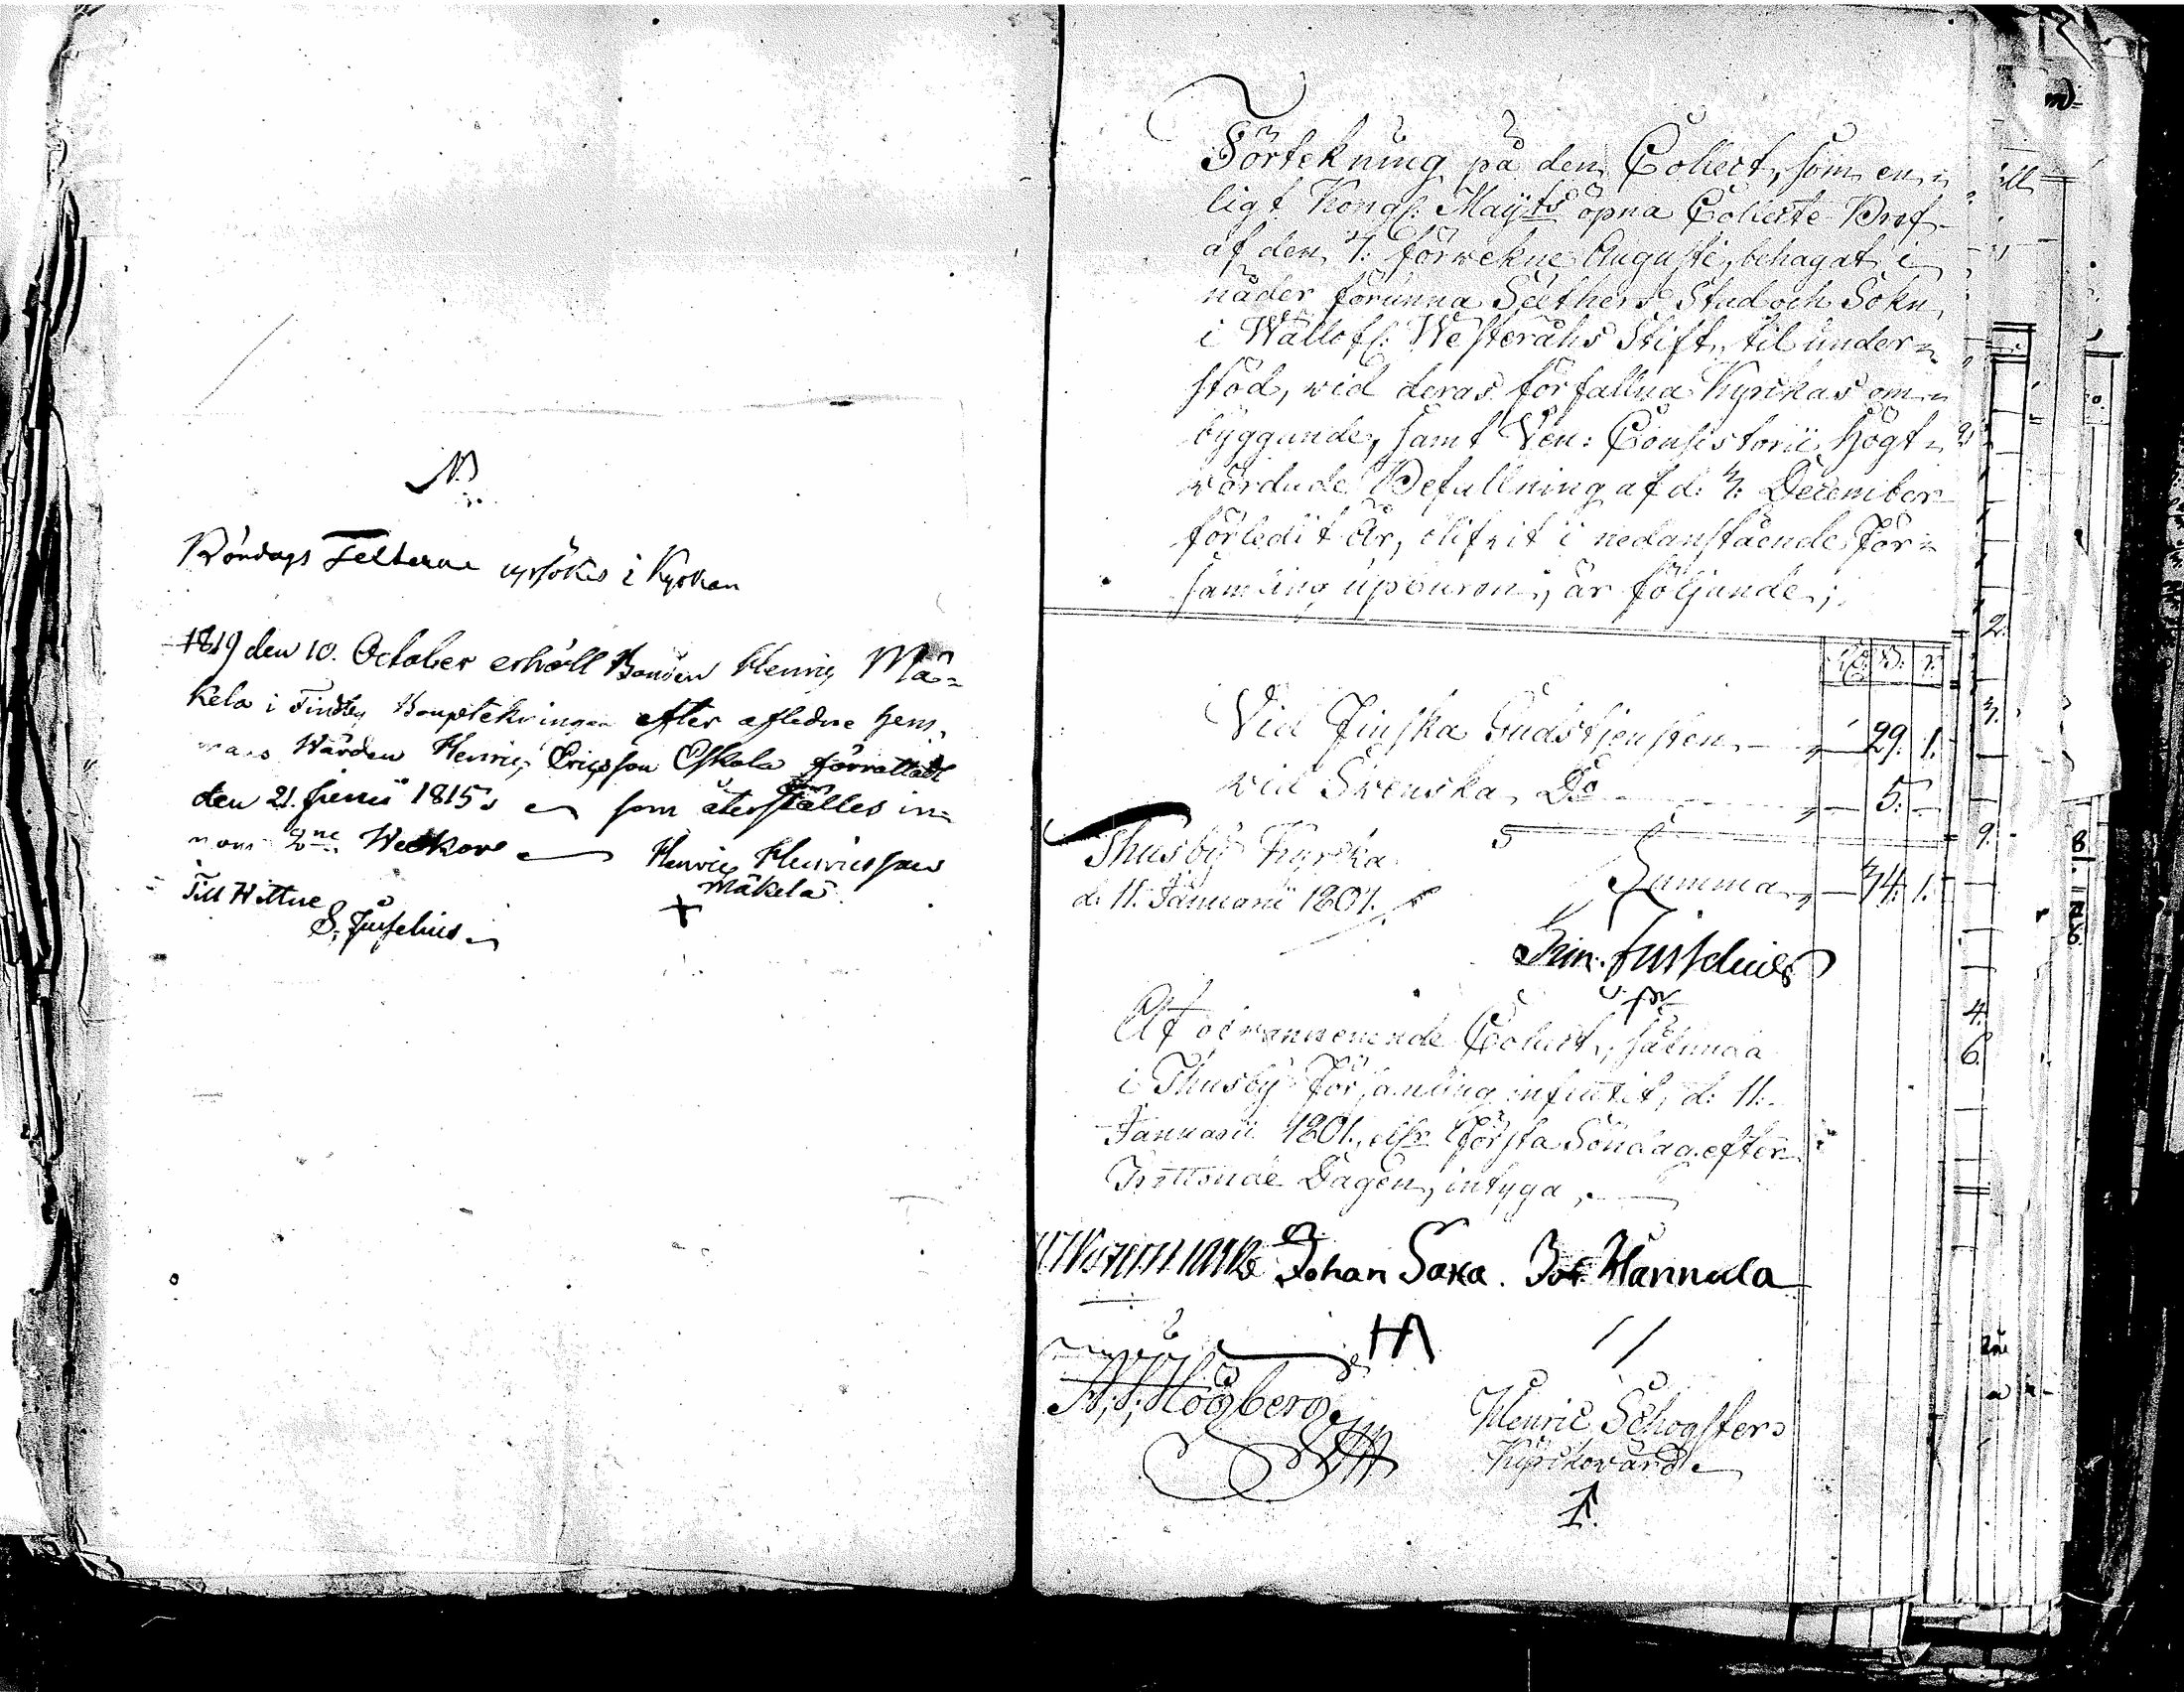 NB
Böndags Texterne upsökes i Kyrkan
1819 den 10. October erhöll Bonden Henric Mä=
kelä i Finsby Bouptekningen efter afledne hem,
mans Wärden Henric Ericsson Eskola förrättad
den 21. Junii 1815, som återställes in=
nom 2ne Weckor Henric Henricsson
Mäkelä
Till Wittne
S. Juselius
Förtekning på den Collect, som en=
ligt Kongl. Maijts öpna Collecte Bref
af den 7. förwekne Augusti, behagat i
nåder förunna Säthers Stad och Sokn
i Westeråhs Stift, til under=
stöd, wid deras förfallna Kyrckas om=
byggande, samt Ven: Consistorii Högt=
wördade Befallning af d: 3. December
förledit År, blifvit i nedanstående För=
samling upburen, är följande;
Vid Finska Gudstjensten — 29. 1.
wid Svenska Do — 5. —
Thusby Kyrcka
d. 11. Januarii 1801.
Summa — 34. 1.
Sim. Juselius
Af ofvannemnde Collect, sålunda
i Thusby Församling influtit, d: 11.
Januarii 1801, eller Första Söndag. efter
Trettonde Dagen, intyga,
Johan Saxa. Jos Hannula
HA
//
Högberg
Henric Schogster
Kyrckovärd